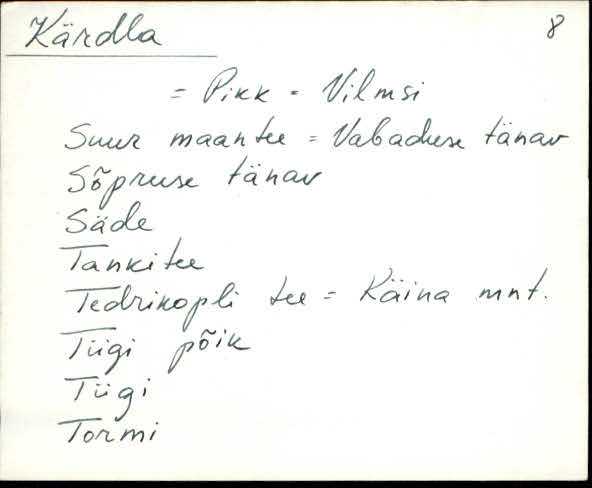 Kärdla 8
= Pikk = Vilmsi
Suur maantee = Vabaduse tänav
Sõpruse tänav
Säde
Tankitee
Tedrikopli tee = Käina mnt.
Tiigi põik
Tiigi
Tormi